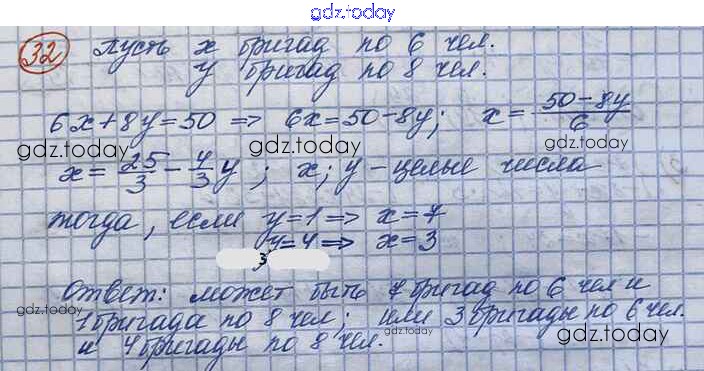 gdz.today
32 Пусть x бригад по 6 чел.
y бригад по 8 чел.
6x+8y=50 => 6x=50-8y; x= 50-8y/6
gdz.today gdz.today gdz.today
x= 25/3 - 4/3 y; x; y - целые числа
тогда, если y=1 => x=7
y=4 => x=3
gdz.today gdz.today
3
Ответ: может быть 7 бригад по 6 чел и
gdz.today
1 бригада по 8 чел; или 3 бригады по 6 чел.
gdz.today gdz.today
и 4 бригады по 8 чел.